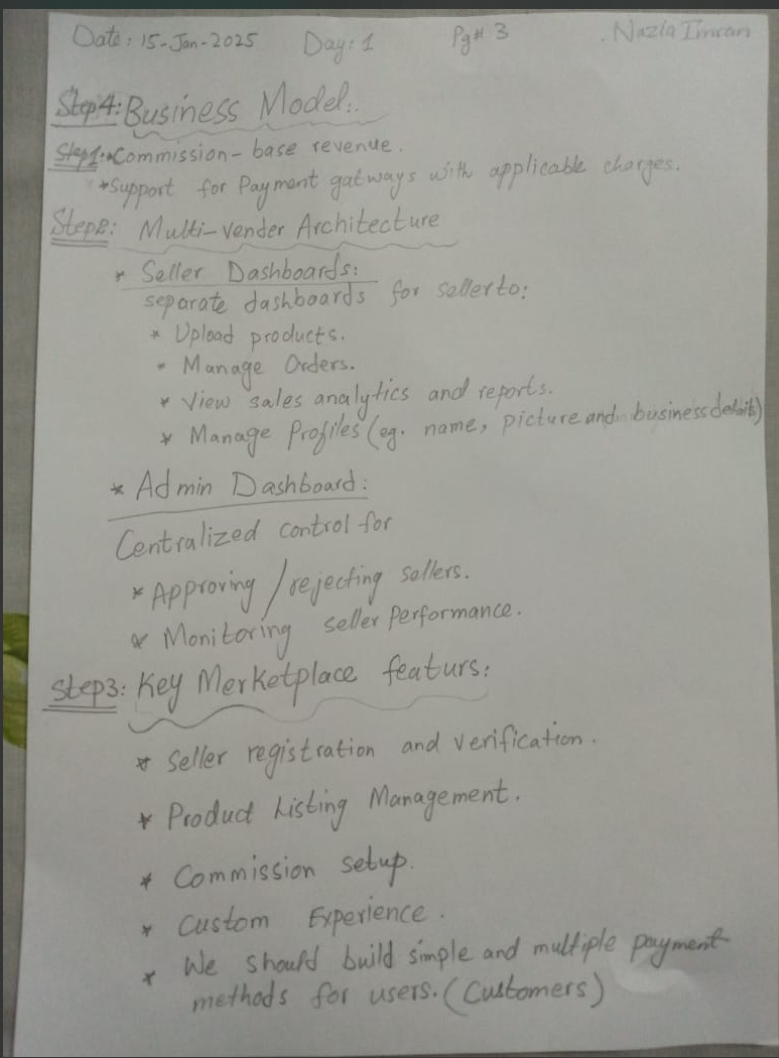 Date: 15-Jan-2025 Day: 1 Pg# 3 Nazia Imran
Step4: Business Model:.
Step1: Commission-base revenue.
*Support for Payment gatways with applicable charges.
Step2: Multi-vender Architecture
* Seller Dashboards:
separate dashboards for seller to:
* Upload products.
* Manage Orders.
* View sales analytics and reports.
* Manage Profiles (eg. name, picture and business details)
* Admin Dashboard:
Centralized control for
* Approving / rejecting sellers.
* Monitoring seller Performance.
Step3: Key Merketplace featurs:
* Seller registration and verification.
* Product Listing Management.
* Commission setup.
* Custom Experience.
* We should build simple and multiple payment
methods for users. (Customers)